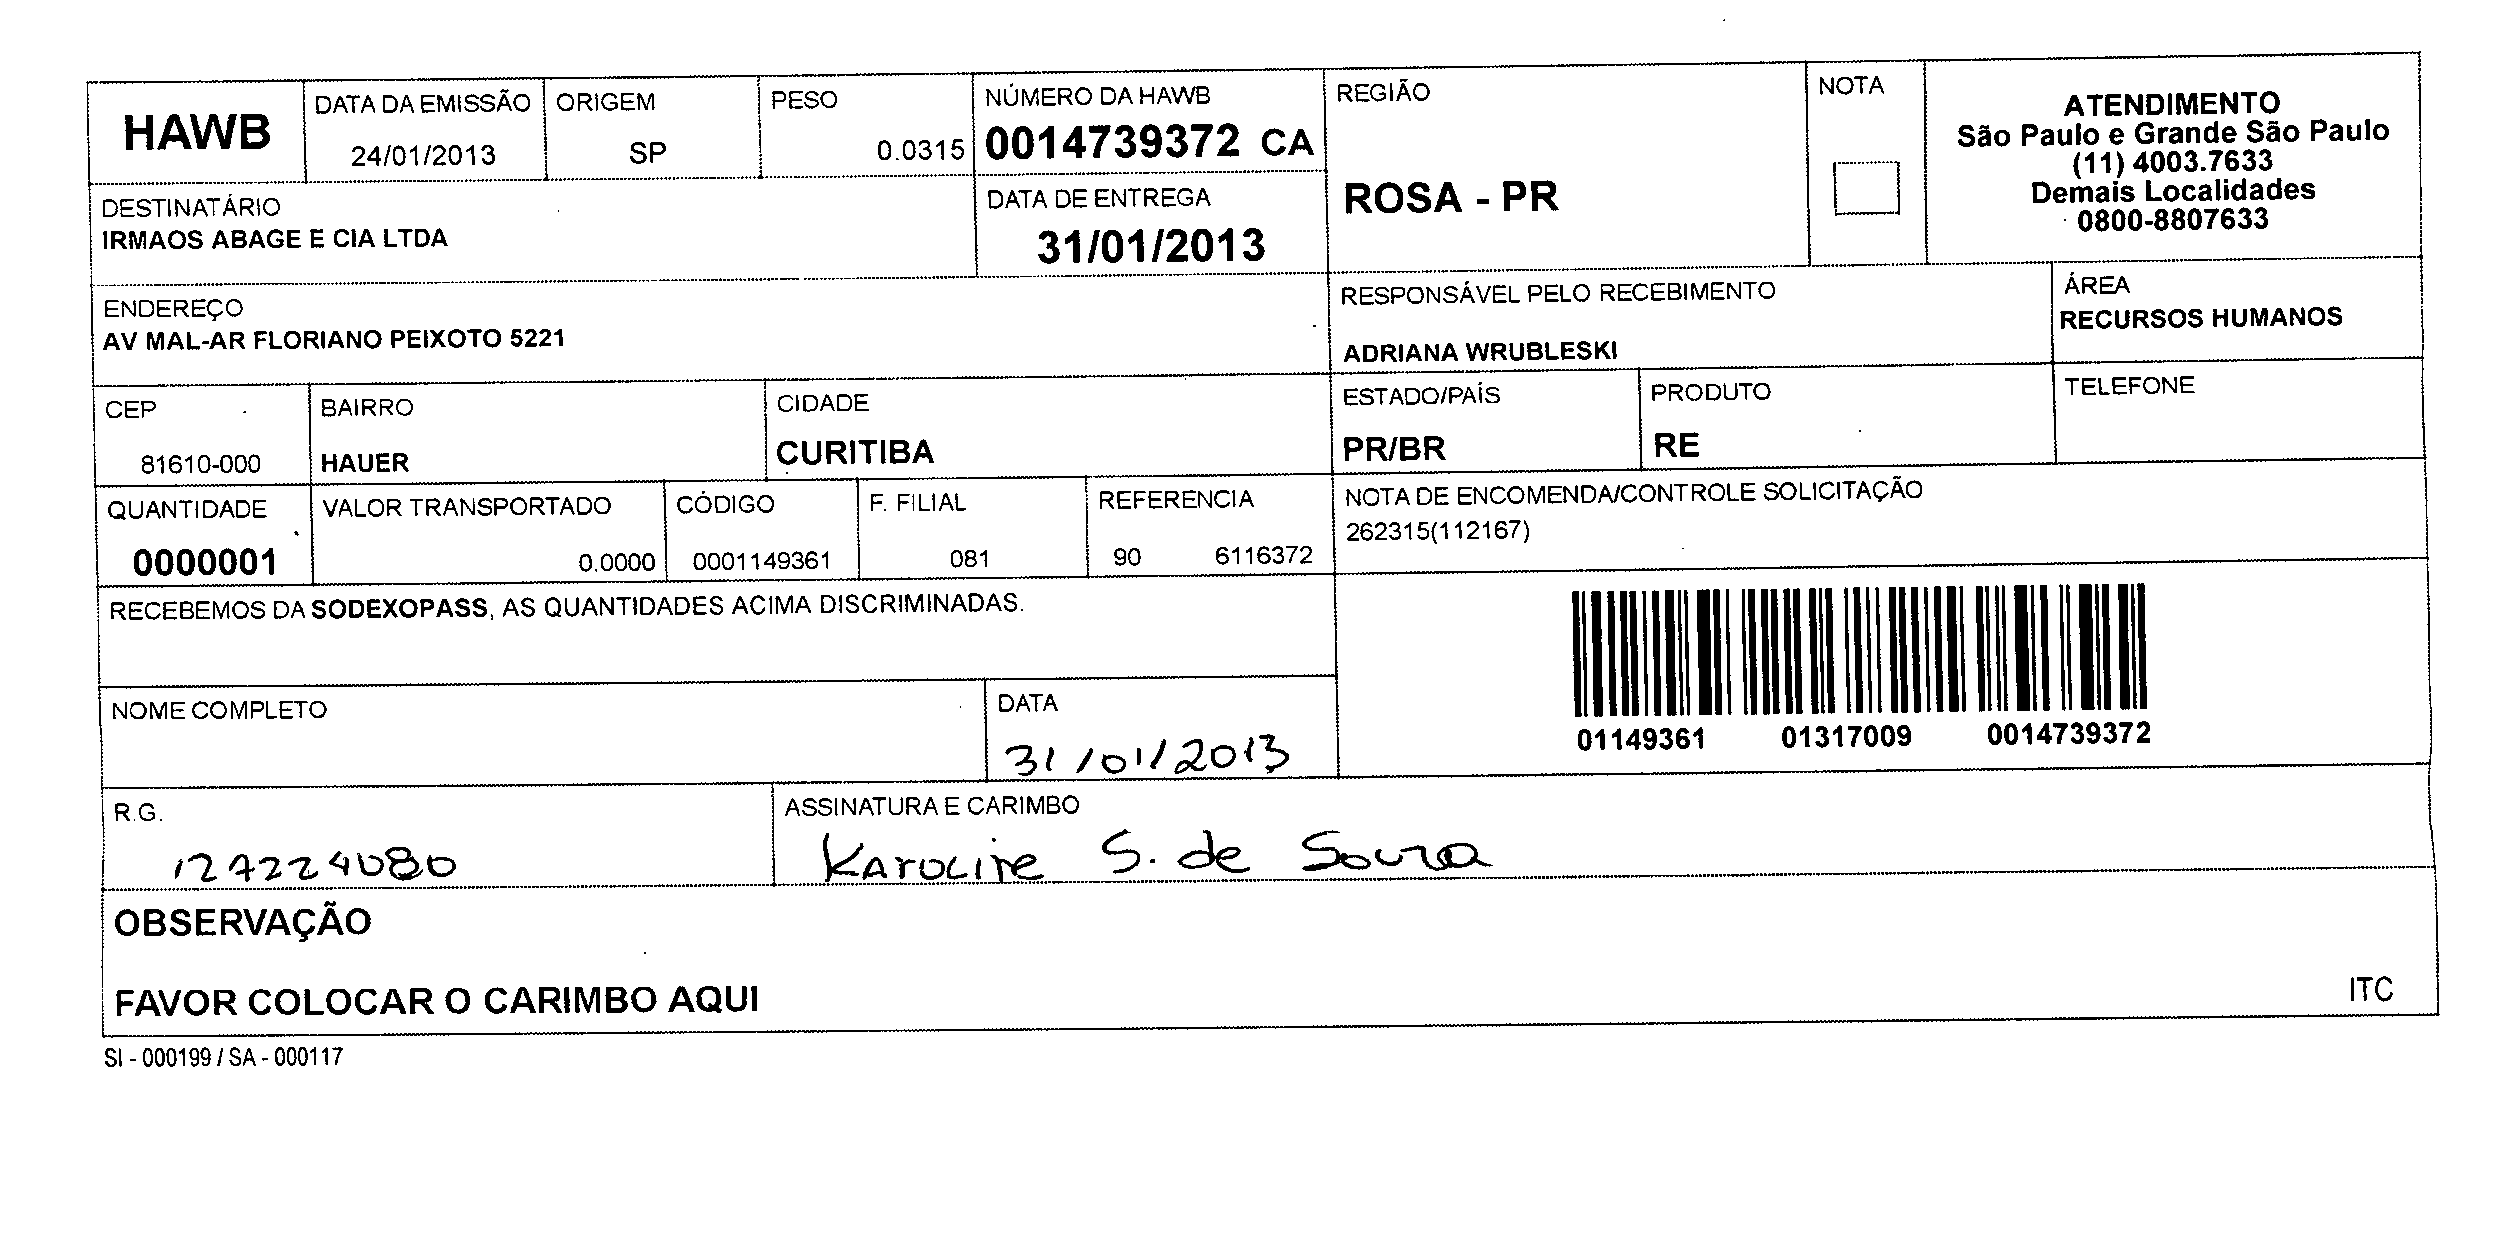 HAWB
DATA DA EMISSÃO
24/01/2013
ORIGEM
SP
PESO
0.0315
NÚMERO DA HAWB
0014739372 CA
REGIÃO
ROSA - PR
NOTA
ATENDIMENTO
São Paulo e Grande São Paulo
(11) 4003.7633
Demais Localidades
0800-8807633
DESTINATÁRIO
IRMAOS ABAGE E CIA LTDA
DATA DE ENTREGA
31/01/2013
ENDEREÇO
AV MAL-AR FLORIANO PEIXOTO 5221
RESPONSÁVEL PELO RECEBIMENTO
ADRIANA WRUBLESKI
ÁREA
RECURSOS HUMANOS
CEP
81610-000
BAIRRO
HAUER
CIDADE
CURITIBA
ESTADO/PAÍS
PR/BR
PRODUTO
RE
TELEFONE
QUANTIDADE
0000001
VALOR TRANSPORTADO
0.0000
CÓDIGO
0001149361
F. FILIAL
081
REFERENCIA
90 6116372
NOTA DE ENCOMENDA/CONTROLE SOLICITAÇÃO
262315(112167)
RECEBEMOS DA SODEXOPASS, AS QUANTIDADES ACIMA DISCRIMINADAS.
01149361 01317009 0014739372
NOME COMPLETO
DATA
31/01/2013
R.G.
127224080
ASSINATURA E CARIMBO
Karoline S. de Souza
OBSERVAÇÃO
FAVOR COLOCAR O CARIMBO AQUI
ITC
SI - 000199 / SA - 000117